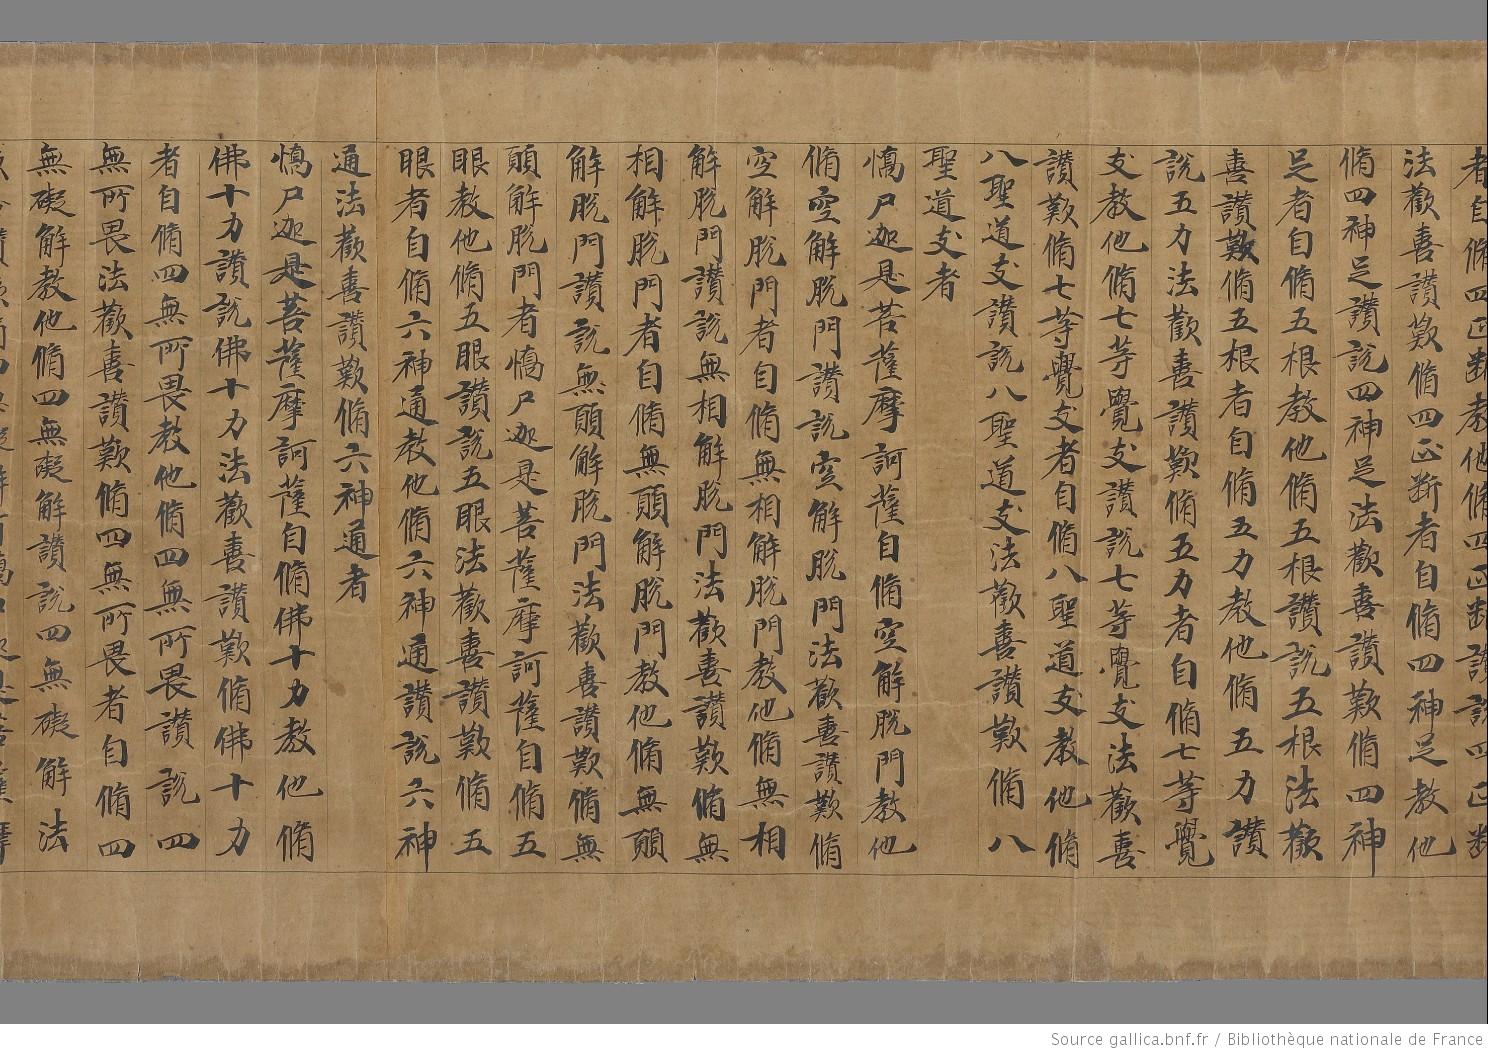 者自脩四正斷教他脩四正斷讚說四正斷
法歡喜讚歎脩四正斷者自脩四神足教他
脩四神足讚說四神足法歡喜讚歎脩四神
足者自脩五根教他脩五根讚說五根法歡
喜讚歎脩五根者自脩五力教他脩五力讚
說五力法歡喜讚歎脩五力者自脩七等覺
支教他脩七等覺支讚說七等覺支法歡喜
讚歎脩七等覺支者自脩八聖道支教他脩
八聖道支讚說八聖道支法歡喜讚歎脩八
聖道支者
憍尸迦是菩薩摩訶薩自脩空解脫門教他
脩空解脫門讚說空解脫門法歡喜讚歎脩
空解脫門者自脩無相解脫門教他脩無相
解脫門讚說無相解脫門法歡喜讚歎脩無
相解脫門者自脩無願解脫門教他脩無願
解脫門讚說無願解脫門法歡喜讚歎脩無
願解脫門者憍尸迦是菩薩摩訶薩自脩五
眼教他脩五眼讚說五眼法歡喜讚歎脩五
眼者自脩六神通教他脩六神通讚說六神
通法歡喜讚歎脩六神通者
憍尸迦是菩薩摩訶薩自脩佛十力教他脩
佛十力讚說佛十力法歡喜讚歎脩佛十力
者自脩四無所畏教他脩四無所畏讚說四
無所畏法歡喜讚歎脩四無所畏者自脩四
無礙解教他脩四無礙解讚說四無礙解法
Source gallica.bnf.fr / Bibliothèque nationale de France